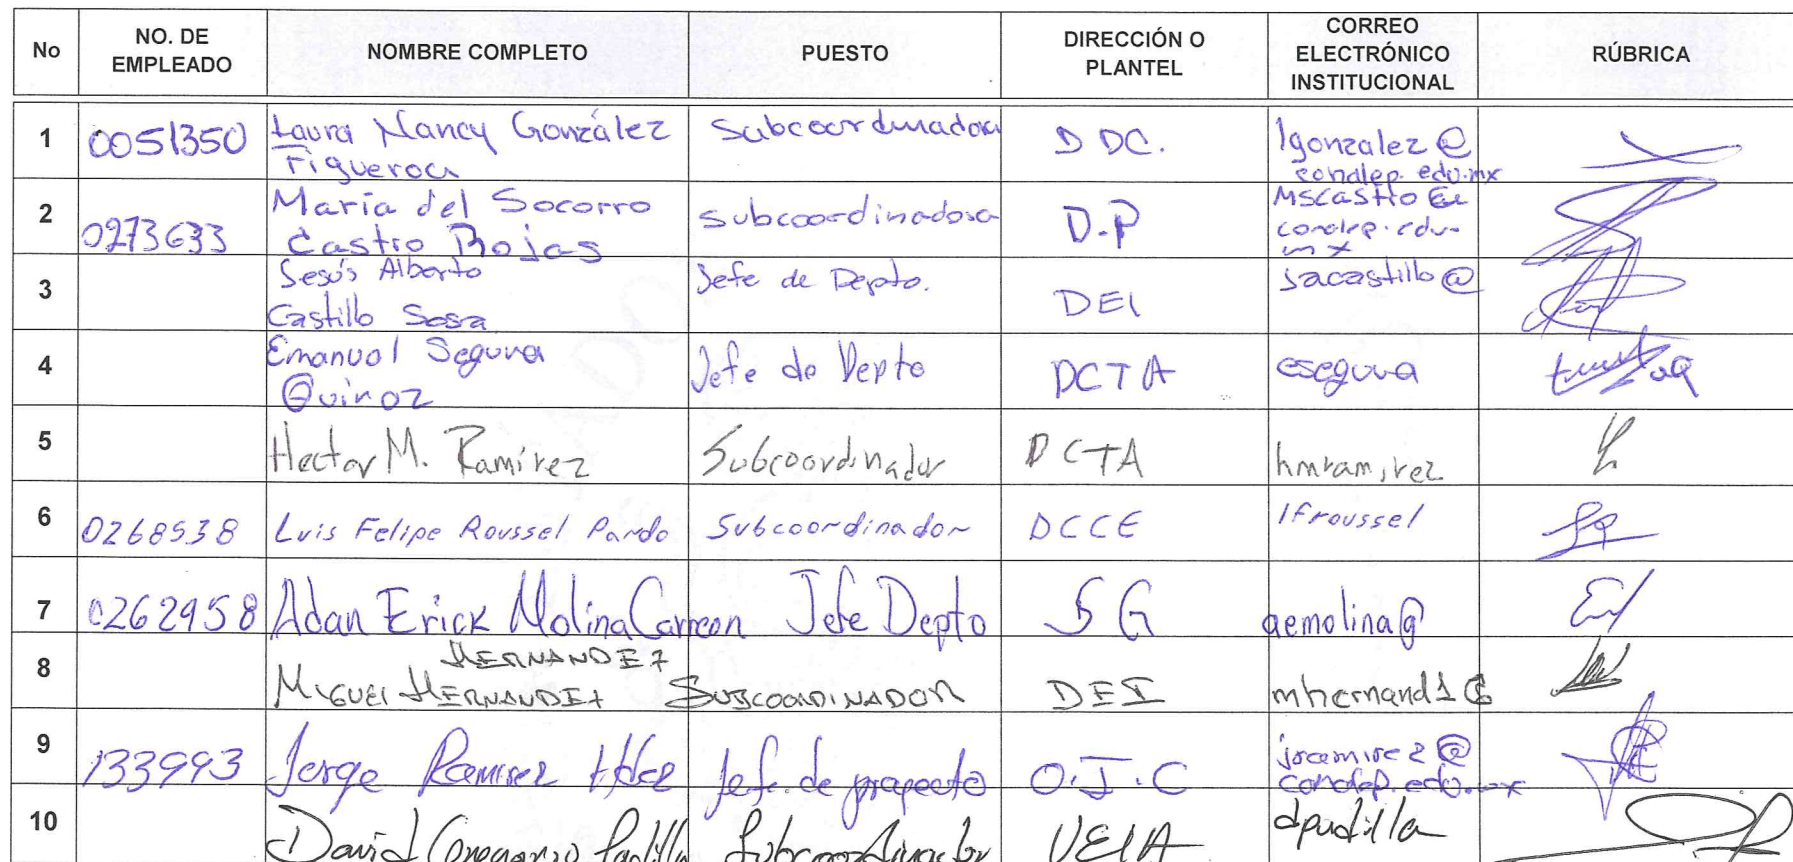 No NO. DE EMPLEADO NOMBRE COMPLETO PUESTO DIRECCIÓN O PLANTEL CORREO ELECTRÓNICO INSTITUCIONAL RÚBRICA
1 0051350 Laura Nancy González Figueroa Subcoordinadora D DC. lgonzalez@ conalep.edu.mx
2 0273633 María del Socorro Castro Rojas Subcoordinadora D.P mscastro@ conalep.edu.mx
3 Jesús Alberto Castillo Sosa Jefe de Depto. DEI jacastillo@
4 Emanuel Segura Quiroz Jefe de Depto DCTA esegura
5 Hector M. Ramírez Subcoordinador DCTA hmramirez
6 0268538 Luis Felipe Roussel Pardo Subcoordinador DCCE lfroussel
7 0262958 Adan Erick Molina Carreon Jefe Depto SG aemolina@
8 MIGUEL HERNANDEZ HERNANDEZ SUBCOORDINADOR DEI mhernand1@
9 133993 Jorge Ramirez Hdez Jefe de proyecto O.I.C jramirez@ conalep.edu.mx
10 David Padilla Subcoordinador UEIA dpadilla